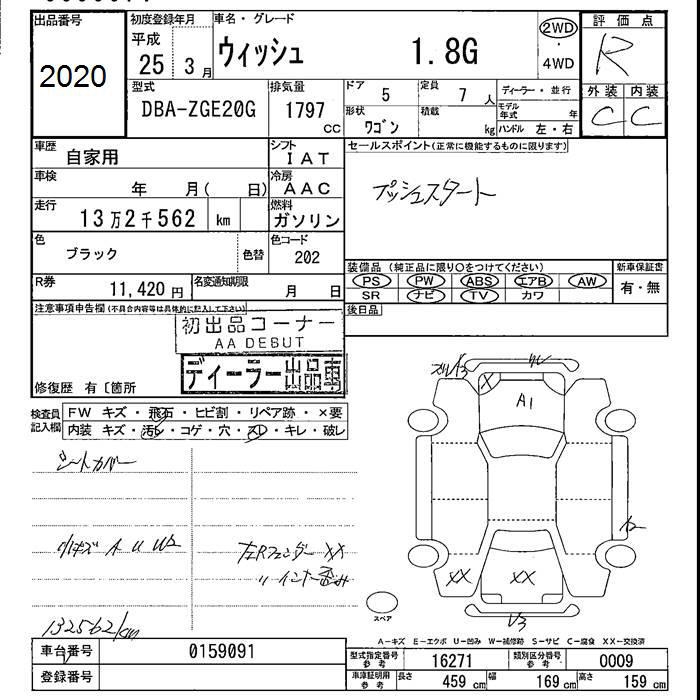 出品番号 初度登録年月 車名・グレード 評価点
2020 平成 25 3月 ウィッシュ 1.8G 2WD ・ 4WD R
型式 排気量 ドア 5 定員 7人 ディーラー・並行 外装 内装
DBA-ZGE20G 1797 CC 形状 ワゴン 積載 kg モデル年式 年 ハンドル 左・右 C C
車歴 自家用 シフト IAT セールスポイント(正常に機能するものに限ります)
車検 年 月( 日) 冷房 AAC プッシュスタート
走行 13万2千562 km 燃料 ガソリン
色 ブラック 色替 色コード 202
装備品 (純正品に限り○をつけてください) 新車保証書
R券 11,420円 名変通知期限 月 日 PS PW ABS エアB AW 有・無
SR ナビ TV カワ
注意事項申告欄(不具合内容等は具体的に記入して下さい) 後日品
初出品コーナー
AA DEBUT
ディーラー出品車
修復歴 有〔箇所
検査員記入欄 FW キズ・飛石・ヒビ割・リペア跡・×要
内装 キズ・汚レ・コゲ・穴・スレ・キレ・破レ
A1
シートカバー
小キズ A U W2 左Rフェンダー XX
〃インナー歪み
XX XX
スペア
132562km
A-キズ E-エクボ U-凹み W-補修跡 S-サビ C-腐食 XX-交換済
車台番号 0159091 型式指定番号 参考 16271 類別区分番号 参考 0009
登録番号 車庫証明用 参考 長さ 459cm 幅 169cm 高さ 159cm